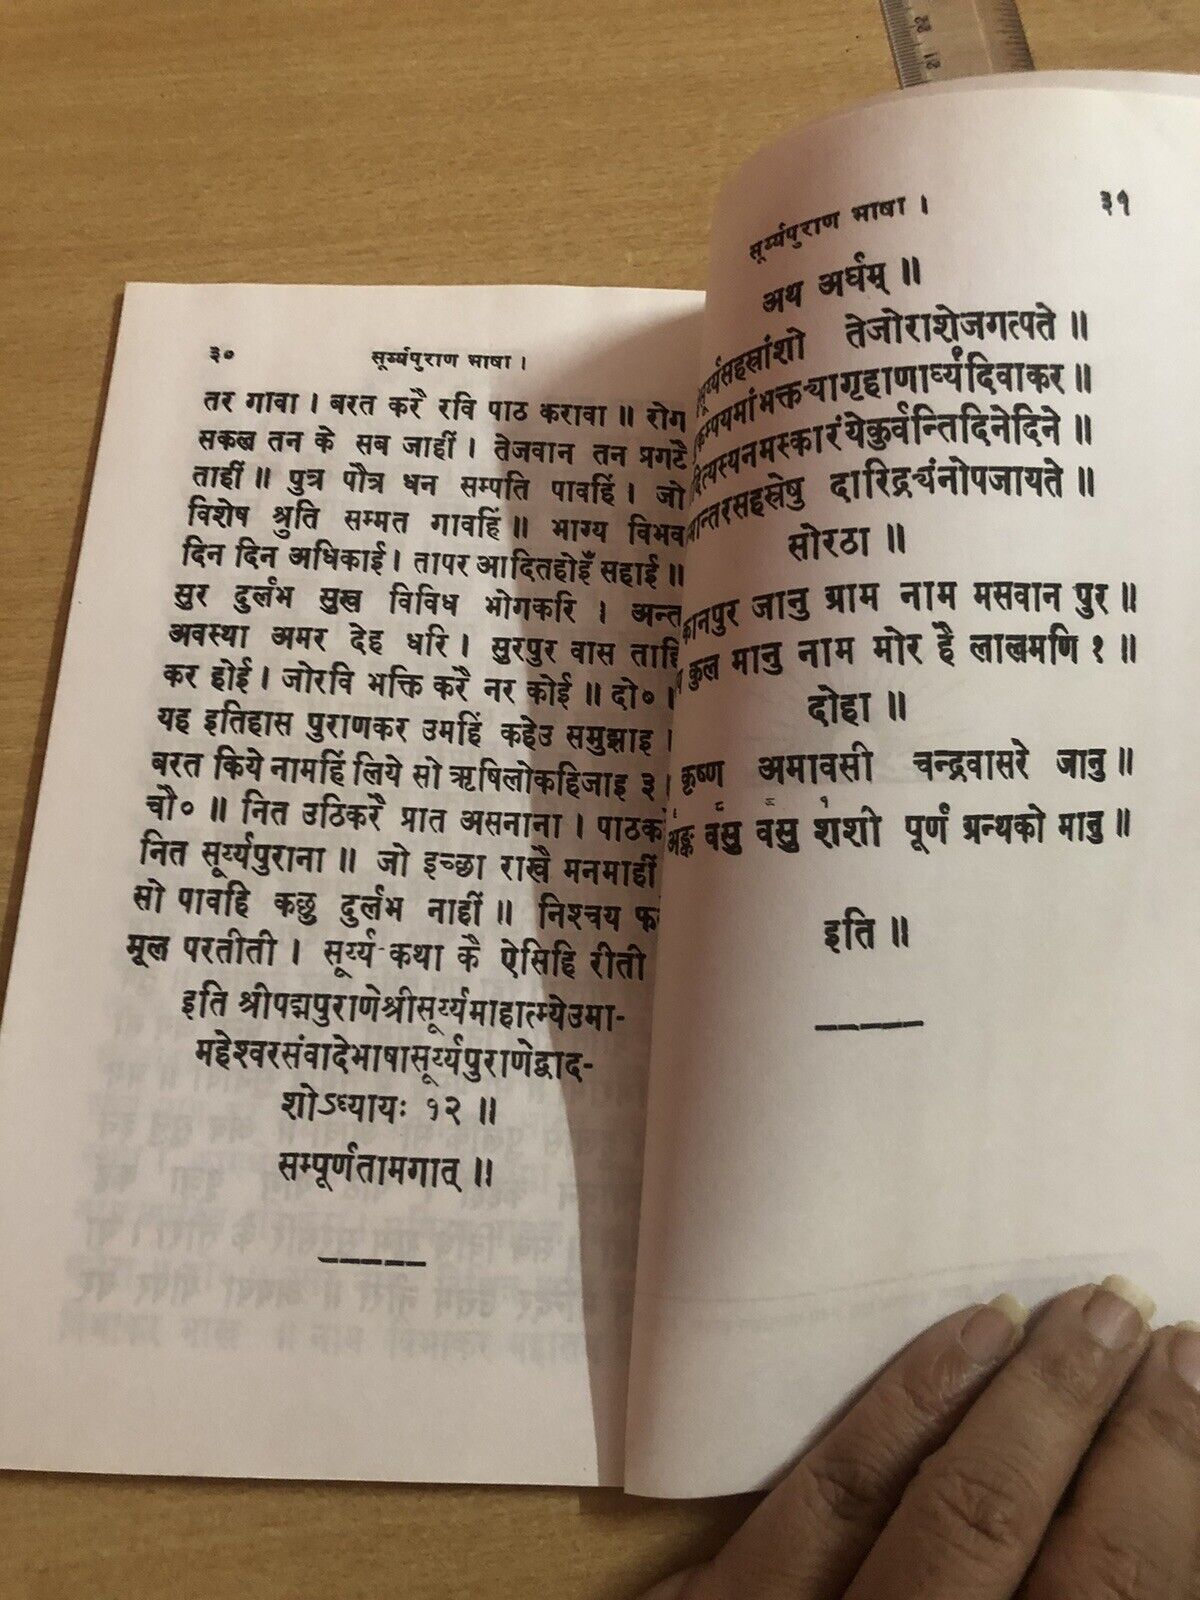 ३०
सूर्य्यपुराण भाषा ।
तर गावा । बरत करै रवि पाठ करावा ॥ रोग
सकल तन के सब जाहीं । तेजवान तन प्रगटै
ताहीं ॥ पुत्र पौत्र धन सम्पति पावहिं । जो
विशेष श्रुति सम्मत गावहिं ॥ भाग्य विभव
दिन दिन अधिकाई । तापर आदितहोइँ सहाई ॥
सुर दुर्लभ सुख विविध भोगकरि । अन्त
अवस्था अमर देह धरि । सुरपुर वास ताहि
कर होई । जोरवि भक्ति करै नर कोई ॥ दो० ।
यह इतिहास पुराणकर उमहिं कहेउ समुझाइ ।
बरत किये नामहिं लिये सो ऋषिलोकहिजाइ ३ ।
चौ० ॥ नित उठिकरै प्रात असनाना । पाठक
नित सूर्य्यपुराना ॥ जो इच्छा राखै मनमाहीं
सो पावहि कछु दुर्लभ नाहीं ॥ निश्चय
मूल परतीती । सूर्य्य-कथा कै ऐसिहि रीती
इति श्रीपद्मपुराणेश्रीसूर्य्यमाहात्म्येउमा-
महेश्वरसंवादेभाषासूर्य्यपुराणेद्वाद-
शोऽध्यायः १२ ॥
सम्पूर्णतामगात् ॥
सूर्य्यपुराण भाषा ।
३१
अथ अर्घम् ॥
सूर्य्यसहस्रांशो तेजोराशेजगत्पते ॥
म्पयमांभक्त्यागृहाणार्घ्यंदिवाकर ॥
दित्यस्यनमस्कारंयेकुर्वन्तिदिनेदिने ॥
न्तरसहस्रेषु दारिद्र्यंनोपजायते ॥
सोरठा ॥
कानपुर जानु ग्राम नाम मसवान पुर ॥
कुल मानु नाम मोर है लालमणि १ ॥
दोहा ॥
कृष्ण अमावसी चन्द्रवासरे जानु ॥
अङ्क वसु वसु शशी पूर्ण ग्रन्थको मानु ॥
इति ॥